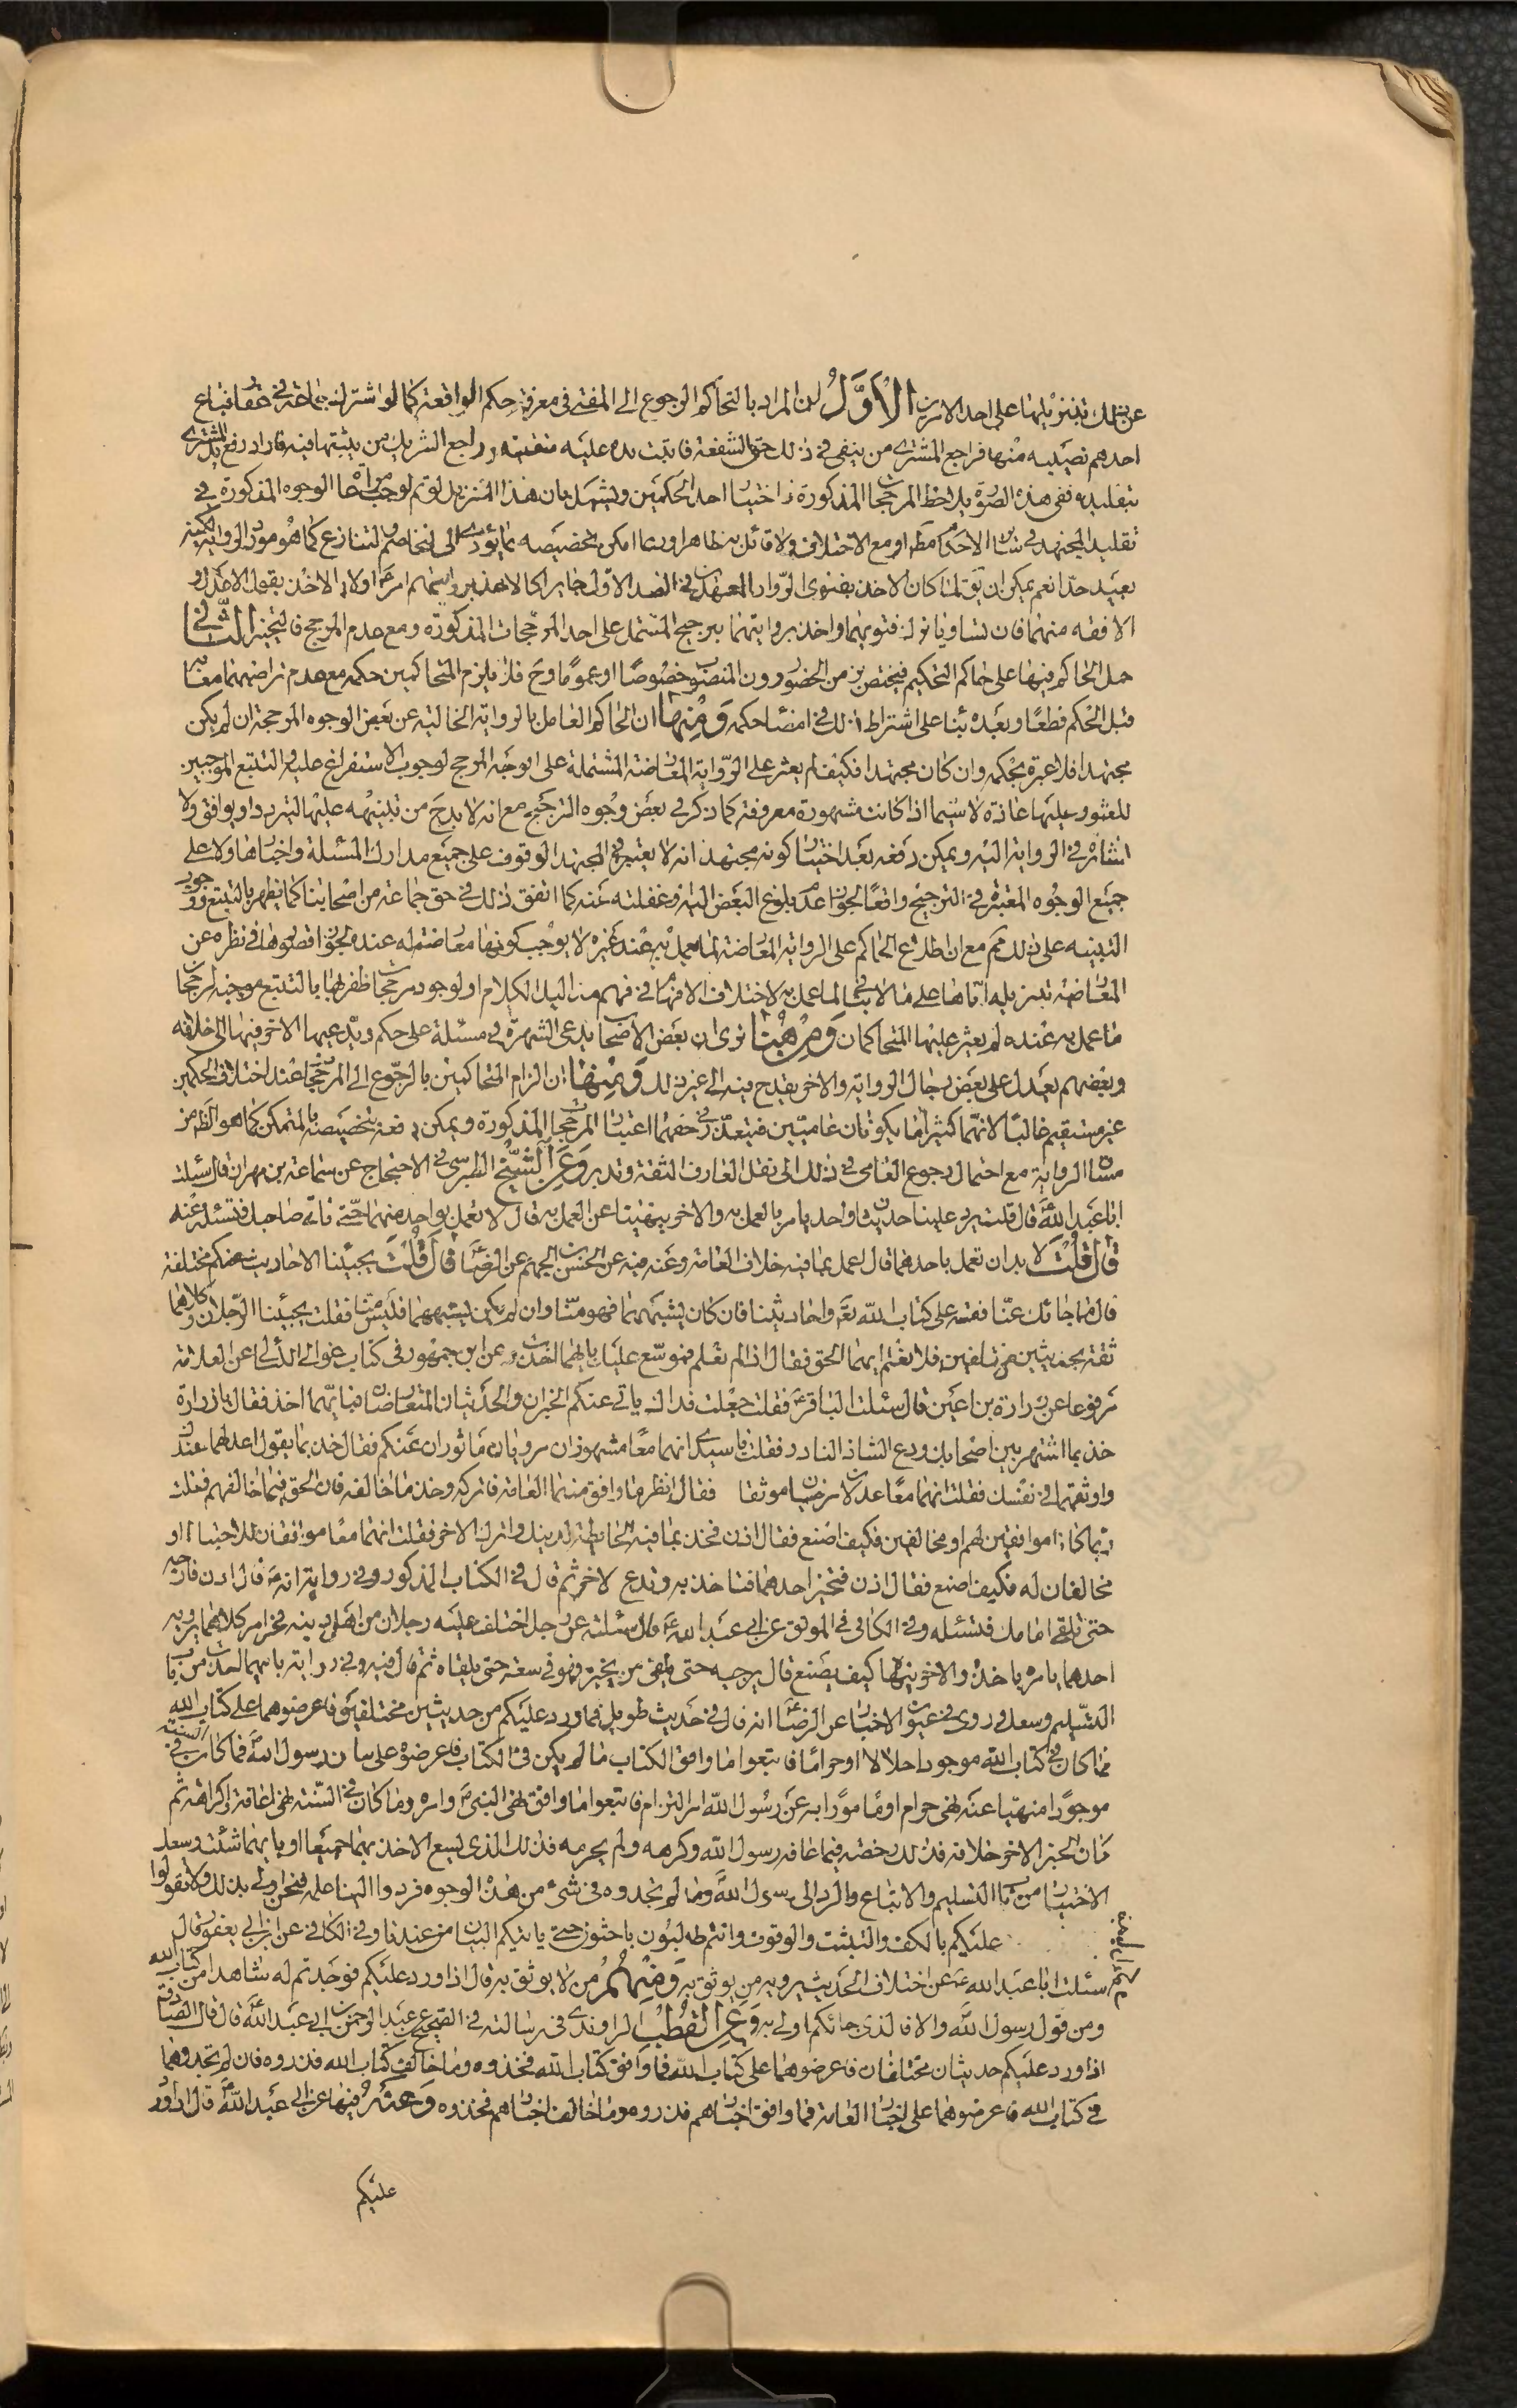 عن ذلك بتنزيلها على احد الامرين الاول ان المراد بالتحاكم الرجوع الى المفتى فى معرفة حكم الواقعة كما لو اشترك جماعة فى عقار فباع
احدهم نصيبه منها فراجع المشترى من ينفى فى ذلك حق الشفعة فاثبت يده عليه بنفسه وراجع الشريك من يثبتها فيه فاراد رفع يد المشترى
بتقليده ففى هذه الصورة يلاحظ المرجحات المذكورة فى اختيار احد الحكمين ويشكل بان هذا التنزيل لو تم لوجب مراعاة الوجوه المذكورة فى
تقليد المجتهد فى سائر الاحكام مطلقا او مع الاختلاف ولا قائل به ظاهرا وربما امكن تخصيصه بما يؤدى الى التخاصم والتنازع كما هو مورد الرواية لكنه
بعيد جدا نعم يمكن ان يقال لما كان الاخذ بفتوى الرواة المعتمدين فى الصدر الاول جائزا كالاخذ بروايتهم امر اولا بالاخذ بقول الاعدل و
الافقه منهما فان تساويا ترك فتويهما واخذ بروايتهما بترجيح المشتمل على احد المرجحات المذكورة ومع عدم المرجح فالتخيير الثانى
حمل الحاكم فيها على حاكم التحكيم فيختص بزمن الحضور دون المنصوب خصوصا او عموما وح فلا يلزم المتحاكمين حكمه مع عدم تراضيهما معا به
قبل الحكم قطعا وبعده بناء على اشتراط ذلك فى امضاء حكمه ومنها ان الحاكم العامل بالرواية الخالية عن بعض الوجوه المرجحة ان لم يكن
مجتهدا فلا عبرة بحكمه وان كان مجتهدا فكيف لم يعثر على الرواية المعارضة المشتملة على الوجه المرجح لوجوب الاستفراغ عليه والتتبع الموجبين
للعثور عليها عادة لا سيما اذا كانت مشهورة معروفة كما ذكر فى بعض وجوه الترجيح مع انه لا بد ح من تنبيهه عليها ليتردد او يوافق ولا
اشارة فى الرواية اليه ويمكن دفعه بعد اختيار كونه مجتهدا انه لا يعتبر فى المجتهد الوقوف على جميع مدارك المسئلة واخبارها ولا على
جميع الوجوه المعتبرة فى الترجيح واقعا لجواز عدم بلوغ البعض اليه وغفلته عنه كما اتفق ذلك فى حق جماعة من اصحابنا كما يظهر بالتتبع ووجود
التنبيه على ذلك مم مع ان اطلاع الحاكم على الرواية المعارضة لما عمل به عند غيره لا يوجب كونها معارضة له عنده لجواز قصورها فى نظره عن
المعارضة بتنزيله اياها على ما لا ينافى لما عمل به لاختلاف الافهام فى فهم منزاليل الكلام او لوجود مرجحات ظفر بها بالتتبع موجبة لرجحان
ما عمل به عنده لم يعثر عليها المتحاكمان ومن هنا ترى ان بعض الاصحاب يدعى الشهرة فى مسئلة على حكم ويدعيها الاخر فيها الى خلافه
وبعضهم يعدل على بعض رجال الرواية والاخر يقدح فيه الى غير ذلك ومنها ان الزام المتحاكمين بالرجوع الى المرجحات عند اختلاف الحكمين
غير مستقيم غالبا لانهما كثيرا ما يكونان عاميين فيتعذر فى حقهما اعتبار المرجحات المذكورة ويمكن دفعه بتخصيصه بالمتمكن كما هو الظ من
مساق الرواية مع احتمال رجوع العامى فى ذلك الى نقل العارف الثقة وتدبر وعن الشيخ الطبرسى فى الاحتجاج عن سماعة بن مهران قال سئلت
ابا عبد الله ع قال قلت يرد علينا حديثان واحد يامر بالعمل به والاخر ينهينا عن العمل به قال لا تعمل بواحد منهما حتى تاتى صاحبك فتسئله عنه
قال قلت لا بد ان تعمل باحدهما قال اعمل بما فيه خلاف العامة وعنه فيه عن الحسن بن الجهم عن الرضا ع قال قلت يجيئنا الاحاديث عنكم مختلفة
قال ما جائك عنا فقسه على كتاب الله تع واحاديثنا فان كان يشبههما فهو منا وان لم يكن يشبههما فليس منا فقلت يجيئنا الرجلان وكلاهما
ثقة بحديثين مختلفين فلا نعلم ايهما الحق فقال اذا لم تعلم فموسع عليك بايهما اخذت وعن ابن جمهور فى كتاب غوالى اللئالى عن العلامة
مرفوعا عن زرارة بن اعين قال سئلت الباقر ع فقلت جعلت فداك ياتى عنكم الخبران والحديثان المتعارضان فبايهما اخذ فقال يا زرارة
خذ بما اشتهر بين اصحابك ودع الشاذ النادر فقلت يا سيدى انهما معا مشهوران مرويان ماثوران عنكم فقال خذ بما يقول اعدلهما عندك
واوثقهما فى نفسك فقلت انهما معا عدلان مرضيان موثقان فقال انظر ما وافق منهما العامة فاتركه وخذ ما خالفه فان الحق فيما خالفهم فقلت
ربما كانا موافقين لهم او مخالفين فكيف اصنع فقال اذن فخذ بما فيه الحائطة لدينك واترك الاخر فقلت انهما معا موافقان للاحتياط او
مخالفان له فكيف اصنع فقال اذن فتخير احدهما فتاخذ به وتدع الاخر ثم قال فى الكتاب المذكور وفى رواية انه ع قال اذن فارجه
حتى تلقى امامك فتسئله وفى الكافى فى الموثق عن ابى عبد الله ع قال سئلته عن رجل اختلف عليه رجلان من اهل دينه فى امر كلاهما يرويه
احدهما يامره ياخذه والاخر ينهاه كيف يصنع قال يرجيه حتى يلقى من يخبره فهو فى سعة حتى يلقاه ثم قال فيه وفى رواية بايهما اخذت من باب
التسليم وسعك وروى فى عيون الاخبار عن الرضا ع انه قال فى حديث طويل فما ورد عليكم من حديثين مختلفين فاعرضوهما على كتاب الله
فما كان فى كتاب الله موجودا حلالا او حراما فاتبعوا ما وافق الكتاب ما لم يكن فى الكتاب فاعرضوه على سنن رسول الله ص فما كان فى السنة
موجودا منهيا عنه نهى حرام او مامورا به عن رسول الله امر الزام فاتبعوا ما وافق نهى النبى ص وامره وما كان فى السنة نهى اعافة او كراهة ثم
كان الخبر الاخر خلافه فذلك رخصة فيما عافه رسول الله وكرهه ولم يحرمه فذلك الذى يسع الاخذ بهما جميعا او بايهما شئت وسعك
الاختيار من باب التسليم والاتباع والرد الى رسول الله وما لم تجدوه فى شئ من هذه الوجوه فردوا الينا علمه فنحن اولى بذلك ولا تقولوا
فيه بارائكم
عليكم بالكف والتثبت والوقوف وانتم طالبون باحثون حتى ياتيكم البيان من عندنا وفى الكافى عن ابن ابى يعفور قال
سئلت ابا عبد الله ع عن اختلاف الحديث يرويه من يوثق به ومنهم من لا يوثق به قال اذا ورد عليكم فوجدتم له شاهدا من كتاب الله
ومن قول رسول الله والا فالذى جائكم اولى به وعن القطب الراوندى فى رسالته فى الصحيح عن عبد الرحمن بن ابى عبد الله قال قال الصادق ع
اذا ورد عليكم حديثان مختلفان فاعرضوهما على كتاب الله فما وافق كتاب الله فخذوه وما خالف كتاب الله فذروه فان لم تجدوهما
فى كتاب الله فاعرضوهما على اخبار العامة فما وافق اخبارهم فذروه وما خالف اخبارهم فخذوه وعنه فيها عن ابى عبد الله ع قال اذا ورد
عليكم